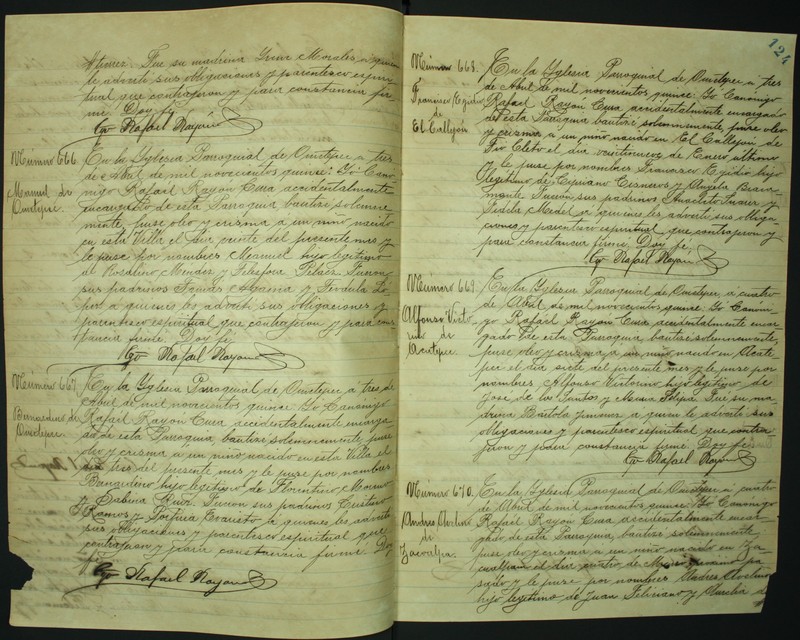 Fue su madrina Irene Morales a quien
le advertí sus obligaciones y parentesco espiri-
tual que contrajeron y para constancia fir-
mé. Doy fe.
Cgo Rafael Rayón
Número 666.
Manuel de
Ometepec.
En la Yglesia Parroquial de Ometepec a tres
de Abril de mil novecientos quince: Yo Canó-
nigo Rafael Rayón Cura accidentalmente
encargado de esta Parroquia bauticé solemne
mente, puse oleo y crisma a un niño nacido
en esta Villa el día veinte del presente mes y
le puse por nombres Manuel hijo legitimo
de Rosalino Mendez y Telesfora Peláez. Fueron
sus padrinos Tomás y
a quienes les advertí sus obligaciones y
parentesco espiritual que contrajeron y para cons
tancia firmé. Doy fe.
Cgo Rafael Rayón
Número 667.
Bernardino de
Ometepec.
En la Yglesia Parroquial de Ometepec a tres de
Abril de mil novecientos quince: Yo Canónigo
Rafael Rayón Cura accidentalmente encarga
do de esta Parroquia, bauticé solemnemente, puse
oleo y crisma a un niño nacido en esta Villa el
día tres del presente mes y le puse por nombres
hijo legitimo de Florentino Moreno
y Sabina Cruz. Fueron sus padrinos
Ramos y Evaristo a quienes les advertí
sus obligaciones y parentesco espiritual que
contrajeron y para constancia firmé. Doy
fe.
Cgo Rafael Rayón
124
Número 668.
Francisco Egidio
de
El Callejón
En la Yglesia Parroquial de Ometepec a tres
de Abril de mil novecientos quince: Yo Canónigo
Rafael Rayón Cura accidentalmente encargado
de esta Parroquia bauticé solemnemente, puse oleo
y crisma a un niño nacido en El Callejón de
el día veintinueve de Enero ultimo
y le puse por nombres Francisco Egidio hijo
legitimo de Cipriano Cisneros y Angela
Fueron sus padrinos Anacleto Suarez y
a quienes les advertí sus obliga
ciones y parentesco espiritual que contrajeron y
para constancia firmé. Doy fe.
Cgo Rafael Rayón
Número 669.
Alfonso Victo
rino de
Acatepec.
En la Yglesia Parroquial de Ometepec a cuatro
de Abril de mil novecientos quince: Yo Canóni
go Rafael Rayón Cura accidentalmente encar
gado de esta Parroquia bauticé solemnemente,
puse oleo y crisma a un niño nacido en Acate
pec el día siete del presente mes y le puse por
nombres Alfonso Victorino hijo legitimo de
José de los Santos y Maria Felipa. Fue su ma
drina Bartola a quien le advertí sus
obligaciones y parentesco espiritual que contra
jeron y para constancia firmé. Doy fe.
Cgo Rafael Rayón
Número 670.
Andres Avelino
de
En la Yglesia Parroquial de Ometepec a cuatro
de Abril de mil novecientos quince: Yo Canónigo
Rafael Rayón Cura accidentalmente encar
gado de esta Parroquia, bauticé solemnemente,
puse oleo y crisma a un niño nacido en
el día cuatro de Marzo proximo pa
sado y le puse por nombres Andres Avelino
hijo legitimo de Juan Feliciano y Aurelia de